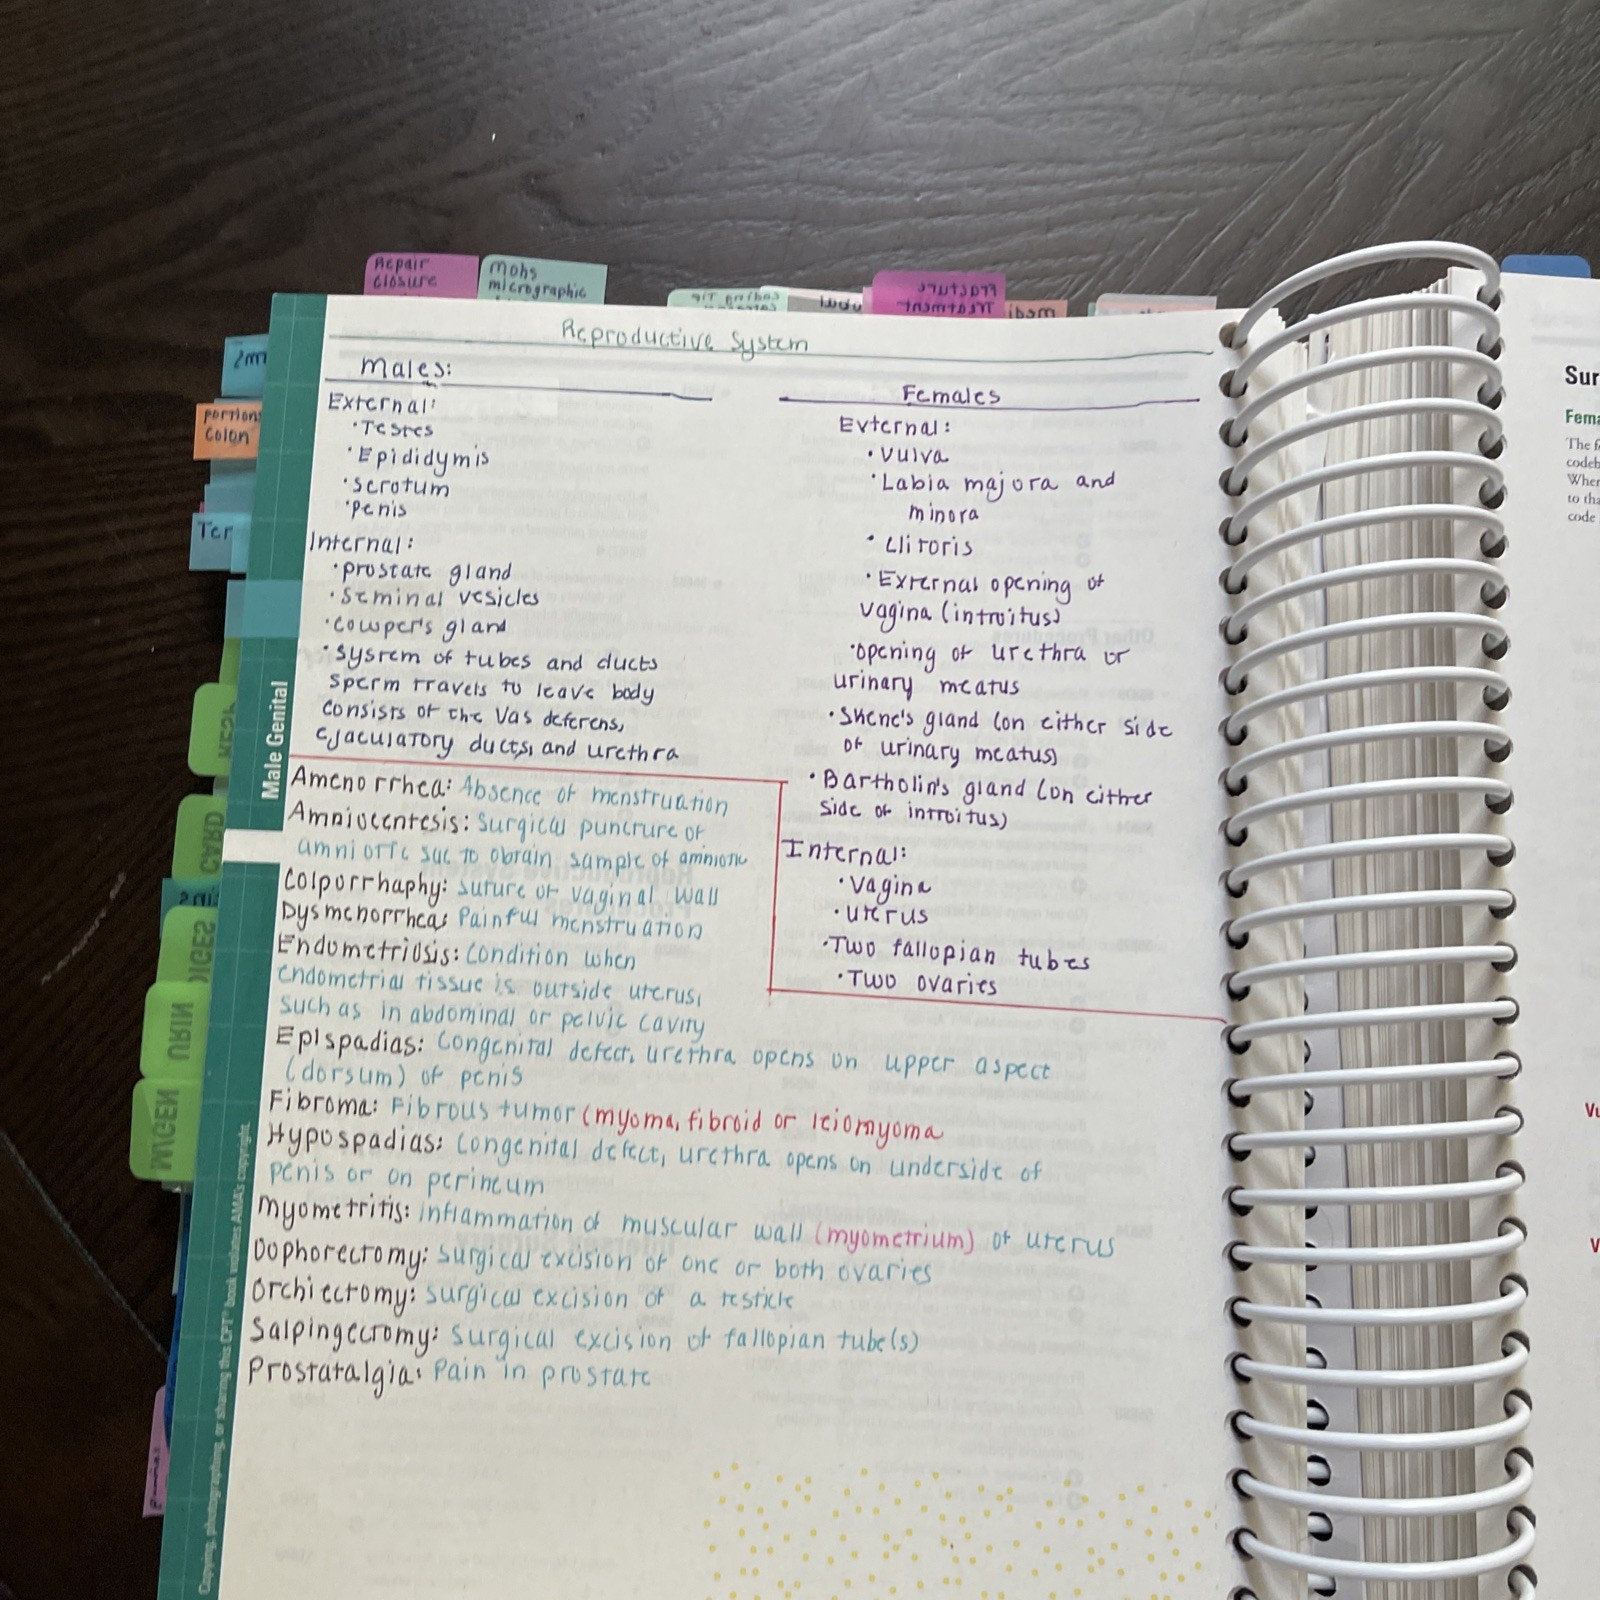 Repair
closure
Mohs
micrographic
Reproductive System
Males:
External:
·Testes
·Epididymis
·scrotum
·penis
Internal:
·prostate gland
·Seminal vesicles
·Cowper's gland
·system of tubes and ducts
sperm travels to leave body
consists of the vas deferens,
ejaculatory ducts, and urethra
Females
External:
·Vulva
·Labia majora and
minora
·clitoris
·External opening of
vagina (introitus)
·opening of urethra or
urinary meatus
·Skene's gland (on either side
of urinary meatus)
·Bartholin's gland (on either
side of introitus)
Internal:
·Vagina
·uterus
·Two fallopian tubes
·Two ovaries
Amenorrhea: Absence of menstruation
Amniocentesis: Surgical puncture of
amniotic sac to obtain sample of amniotic
Colporrhaphy: suture of vaginal wall
Dysmenorrhea: Painful menstruation
Endometriosis: Condition when
endometrial tissue is outside uterus,
such as in abdominal or pelvic cavity
Epispadias: Congenital defect, urethra opens on upper aspect
(dorsum) of penis
Fibroma: Fibrous tumor (myoma, fibroid or leiomyoma
Hypospadias: Congenital defect, urethra opens on underside of
penis or on perineum
Myometritis: inflammation of muscular wall (myometrium) of uterus
Oophorectomy: surgical excision of one or both ovaries
Orchiectomy: surgical excision of a testicle
Salpingectomy: surgical excision of fallopian tube(s)
Prostatalgia: Pain in prostate
Male Genital
Copying, photographing, or sharing this CPT® book violates AMA's copyright.
portions
Colon
Ter
CARD
DIGES
URIN
Fracture
Treatment
Sur
Fema
The f
codeb
When
to tha
code
Vu
V